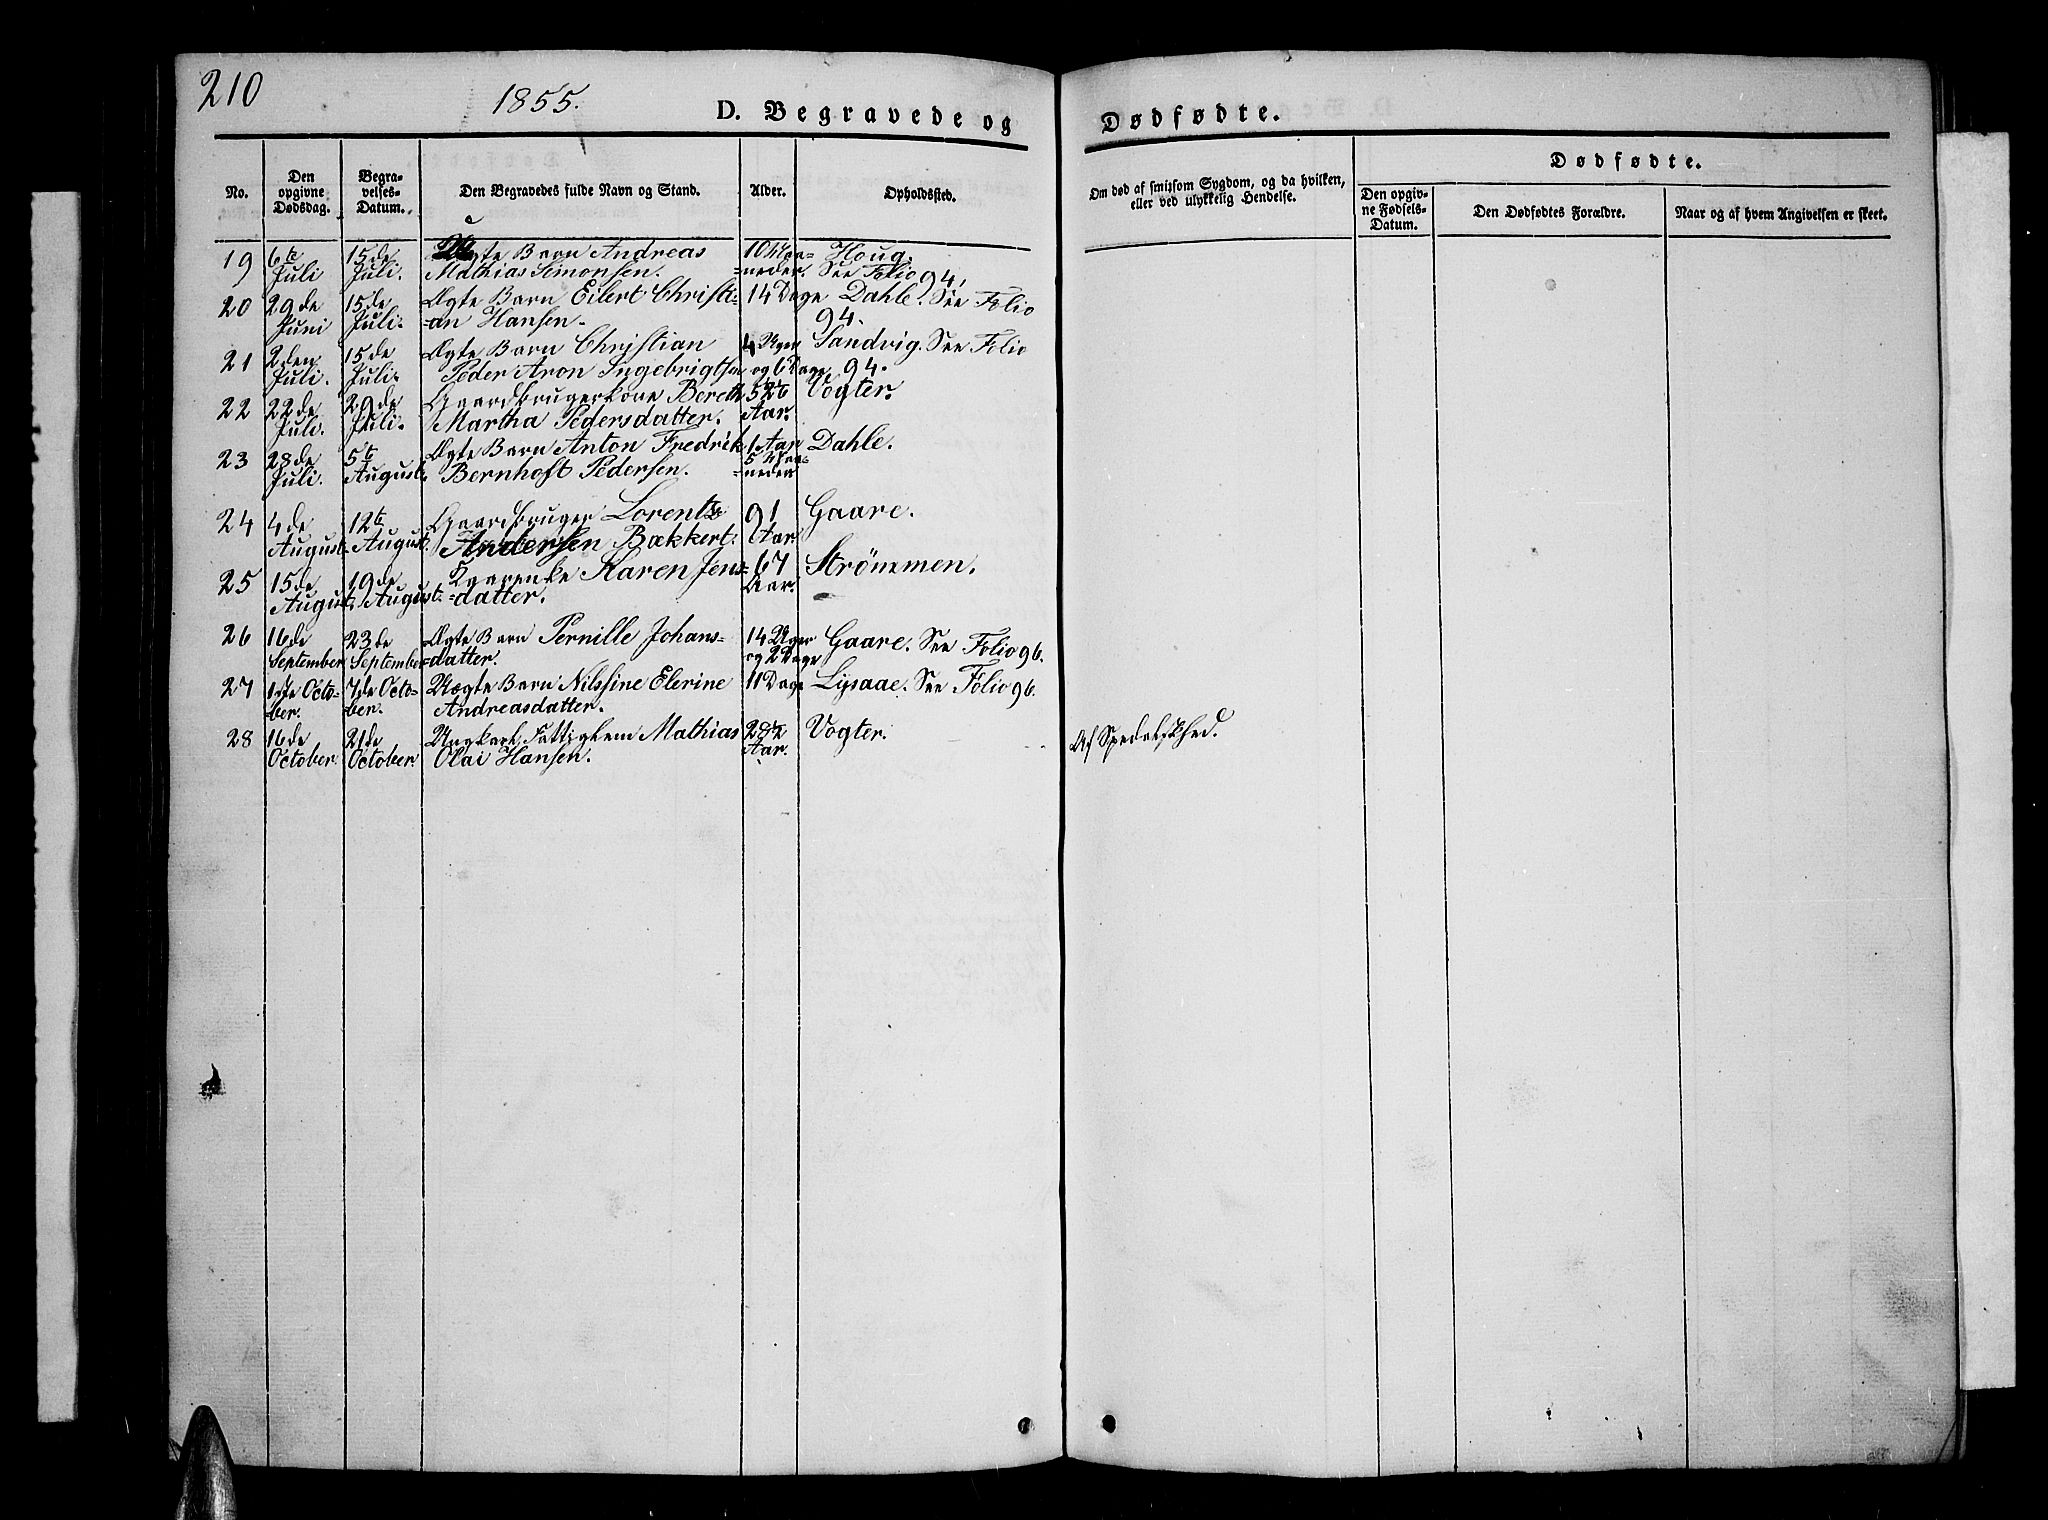 210
1855.
D. Begravede og
Dødfødte.
No.
Den opgivne Dødsdag.
Begravelses-Datum.
Den Begravedes fulde Navn og Stand.
Alder.
Opholdssted.
Om død af smitsom Sygdom, og da hvilken,
eller ved ulykkelig Hendelse.
Dødfødte.
Den opgivne Fødsels-Datum.
Den Dødfødtes Forældre.
Naar og af hvem Angivelsen er skeet.
19 6te 15de Ægte Barn Andreas 10 Maa= Houg.
Juli Juli. Mathias Simonsen. =neder. See Folio 94.
20 29de 15de Ægte Barn Eilert Christi= 14 Dage Dahle. See Folio
Juni Juli. =an Hansen. 94.
21 2den 15de Ægte Barn Christian 4 Uger Sandvig. See Folio
Juli. Juli. Peder Aron Ingebrigtsen og 6 Dage 94.
22 22de 29de Gaardbrugerkone Bereth 52 Vogter.
Juli. Juli. Martha Pedersdatter. Aar.
23 28de 5te Ægte Barn Anton Fredrik 1 Aar Dahle.
Juli. August. Bernhoft Pedersen. 5 Maa=
=neder
24 4de 12te Gaardbruger Lorents 91 Gaare.
August. August. Andersen Bækkert. Aar
25 15de 19de Karen Jens= 67 Strömmen.
August. August. =datter. Aar.
26 16de 23de Ægte Barn Pernille Johans= 14 Uger Gaare. See Folio 96.
September September =datter. og 2 Dage
27 1ste Octo= 7de Octo= Uægte Barn Nilssine Elerine 11 Dage Lysaae. See Folio 96.
ber. ber. Andreasdatter.
28 16de 21de Ungkarl, Fattiglem Mathias 28½ Vogter. Af Spedalskhed.
October. October. Olai Hansen. Aar.